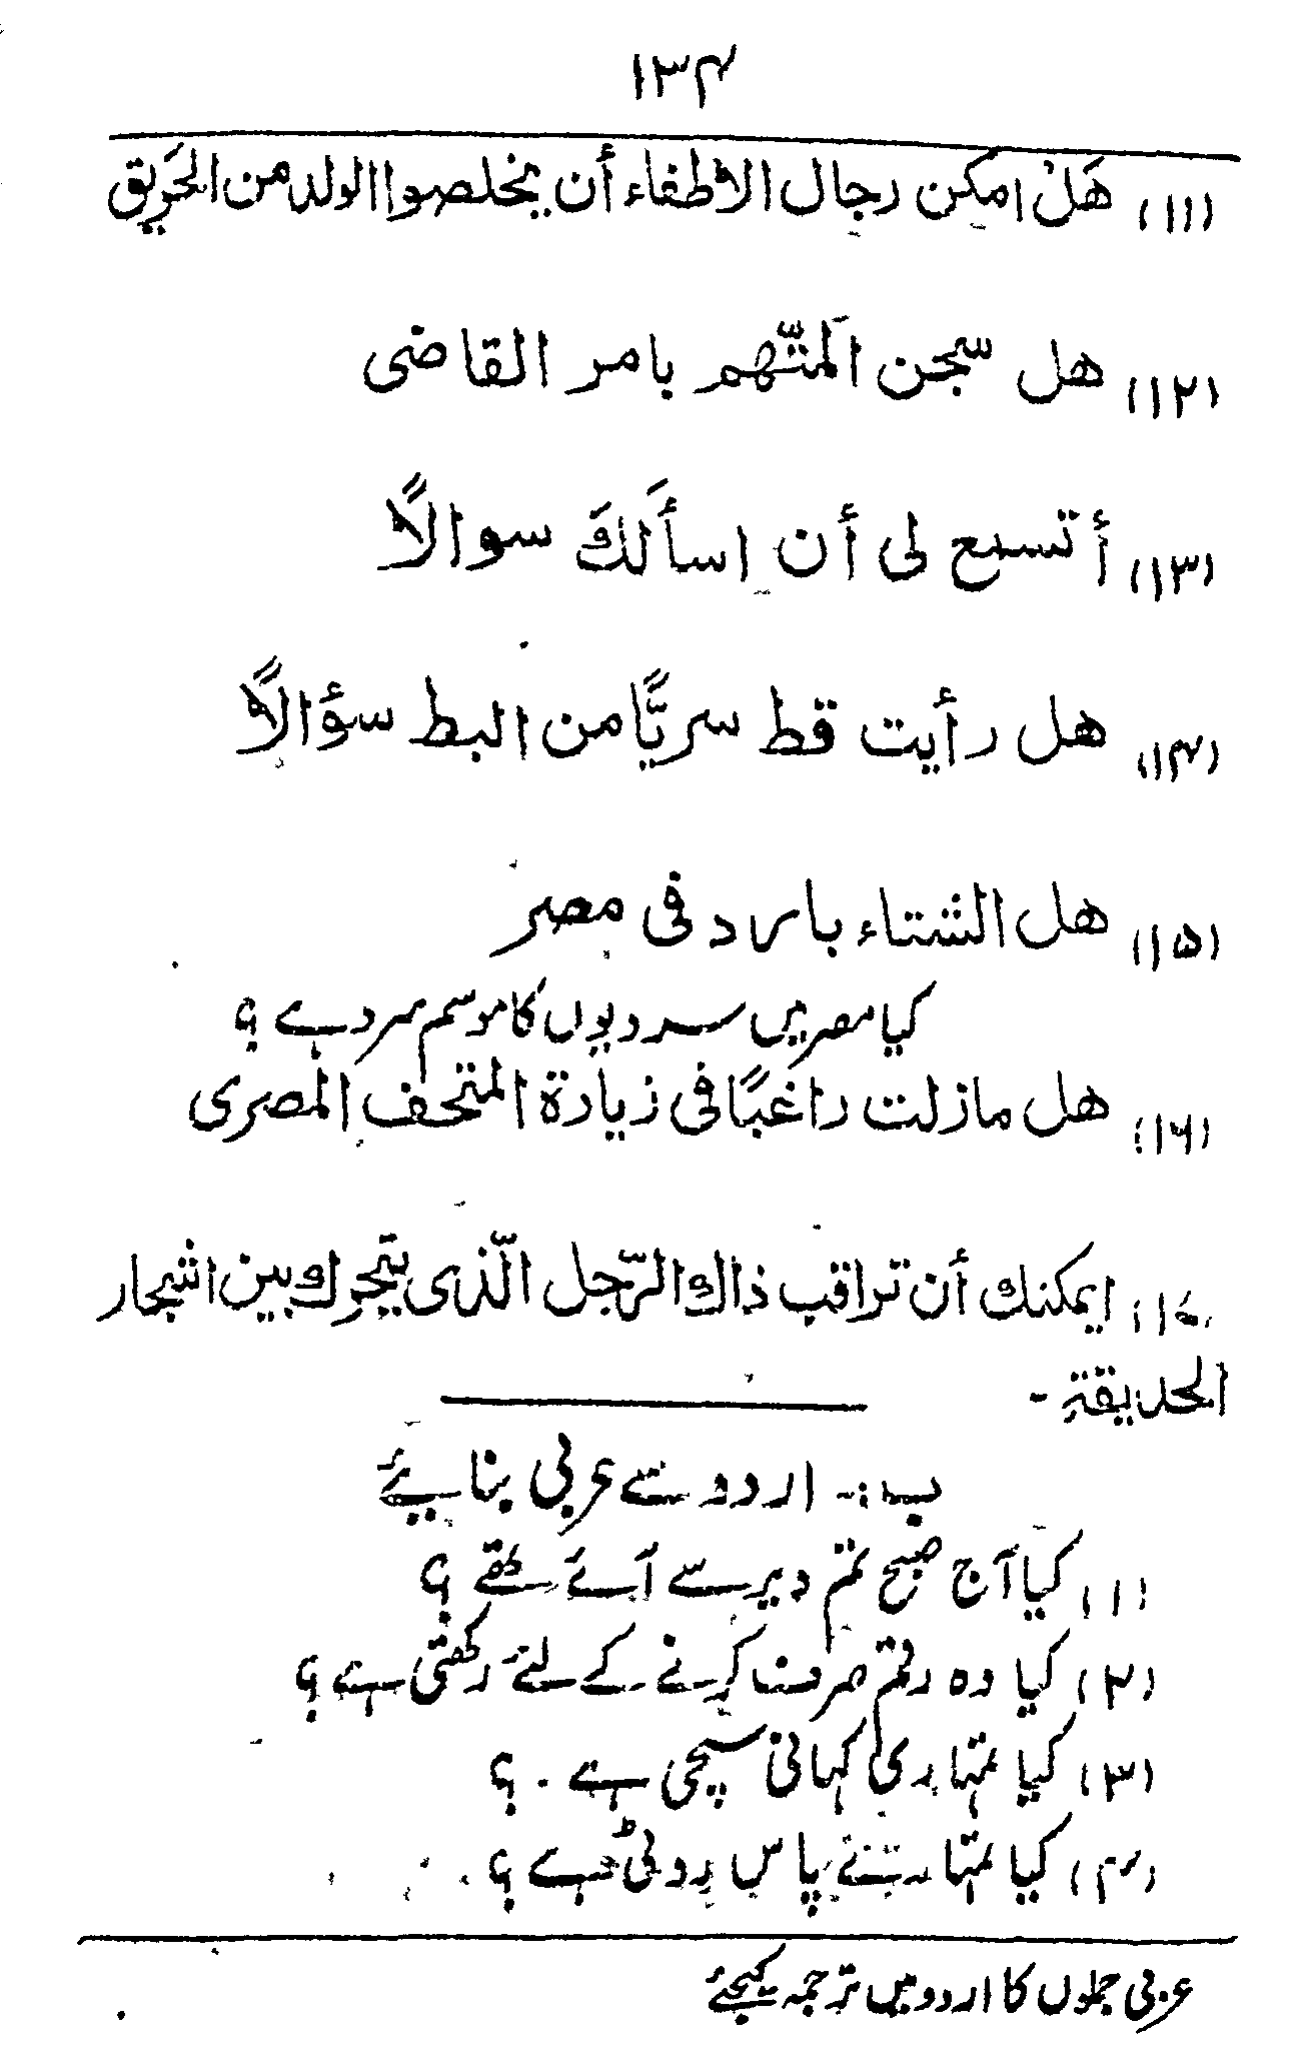 ۱۳۴
(۱۱) هَلْ امكن رجال الاطفاء أن يخلصوا الولد من الحَرِيق
(۱۲) هل سجن المتّهم بامر القاضى
(۱۳) أ تسمح لى أن اسأَلكَ سوالاً
(۱۴) هل رأيت قط سريًّا من البط سؤالاً
(۱۵) هل الشتاء بارد فى مصر
کیا مصر میں سردیوں کا موسم سرد ہے ؟
(۱۶) هل مازلت راغبًا فى زيارة المتحف المصرى
(۱۷) ايمكنك أن تراقب ذاك الرّجل الّذى يتحرك بين اشجار
الحديقة -
ب :- اردو سے عربی بنایئے
(۱) کیا آج صبح تم دیر سے آئے تھے ؟
(۲) کیا وہ رقم صرف کرنے کے لئے رکھتی ہے ؟
(۳) کیا تمہاری کہانی سچی ہے ۔ ؟
(۴) کیا تمہارے پاس روٹی ہے ؟
عربی جملوں کا اردو میں ترجمہ کیجئے